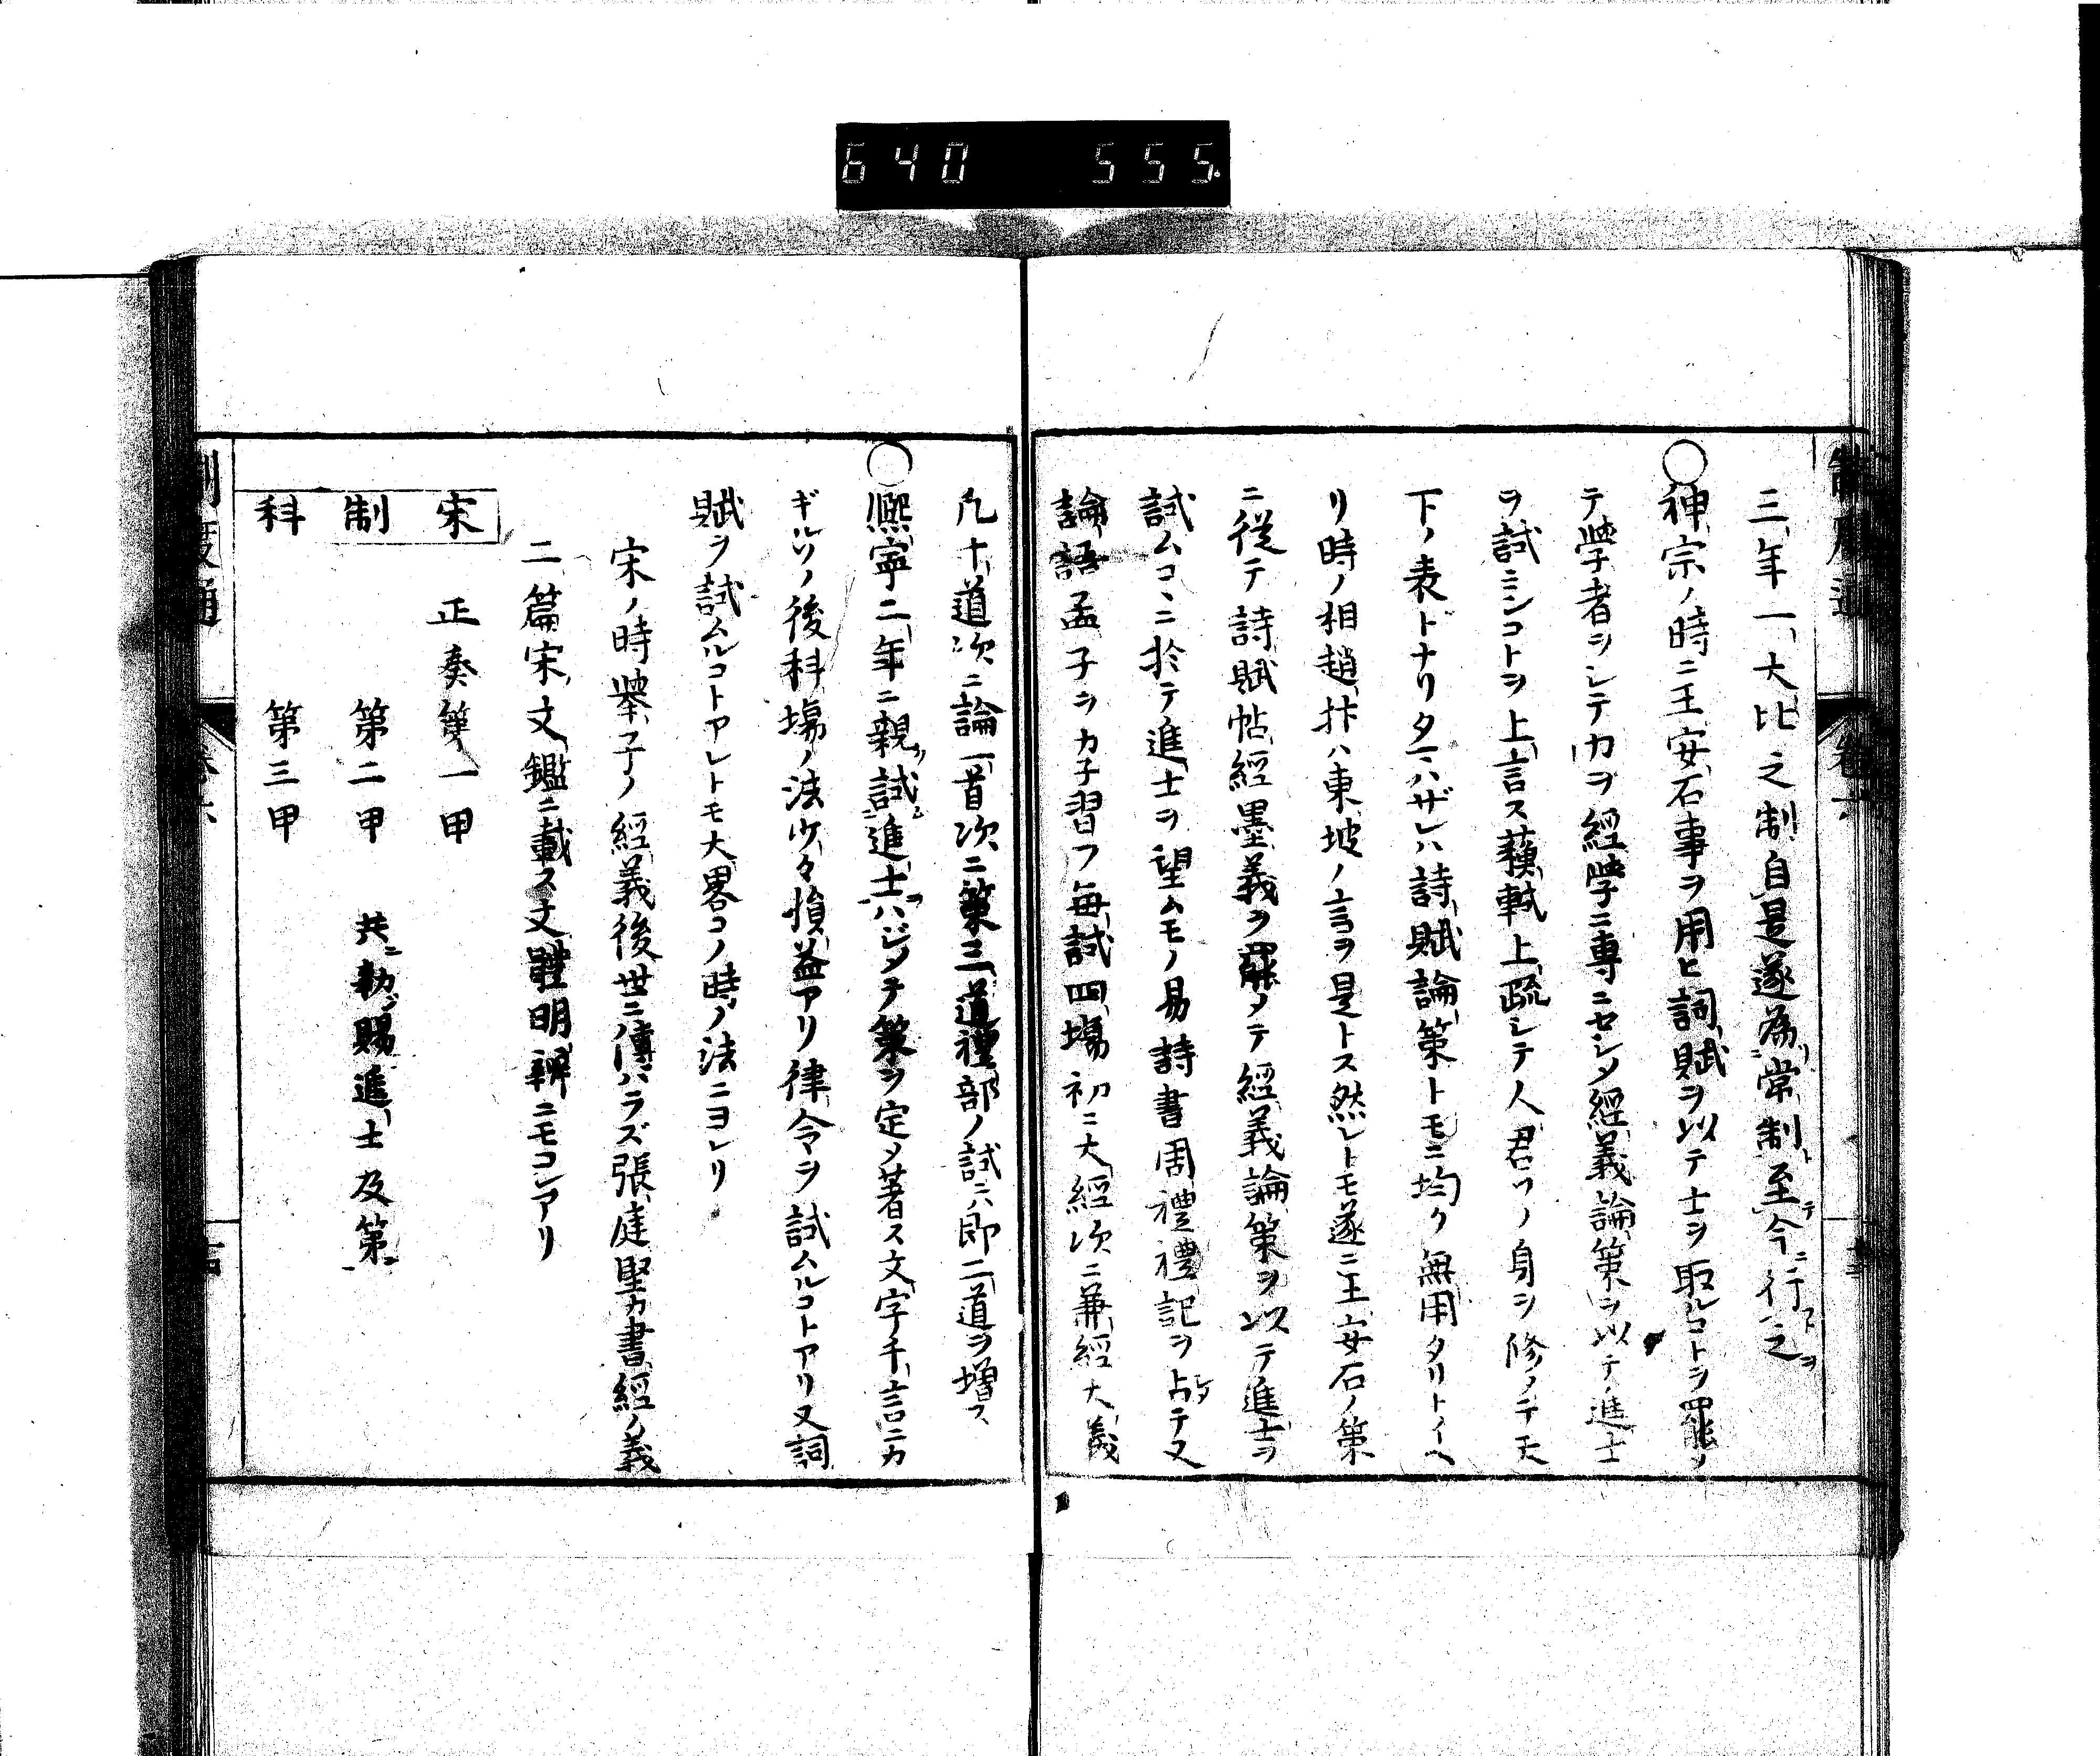 640 555.
制度通 卷六 十三
三年一大比之制自是遂為常制至テ今ニ行フ之ヲ
○神宗ノ時ニ王安石事ヲ用ヒ詞賦ヲ以テ士ヲ取ルコトヲ罷メ
テ學者ヲシテ力ヲ經學ニ專ニセシメ經義論策ヲ以テ進士
ヲ試ミンコトヲ上言ス蘓軾上疏シテ人君ノ身ヲ修ノテ天
下ノ表ドナリタマハザレハ詩賦論策トモニ均ク無用タリトイヘ
リ時ノ相趙抃ハ東坡ノ言ヲ是トス然レトモ遂ニ王安石ノ策
ニ從テ詩賦帖經墨義ヲ罷メテ經義論策ヲ以テ進士ヲ
試ムコヽニ於テ進士ヲ望ムモノ易詩書周禮禮記ヲ占テ又
論語孟子ヲカ子習フ每試四塲初ニ大經次ニ兼經大義
凡十道次ニ論一首次ニ策三道禮部ノ試ニハ即二道ヲ增ス
○熈寧二年ニ親ラ試ム進士ヲハジメテ策ヲ定メ著ス文字千言ニカ
ギルソノ後科塲ノ法少々損益アリ律令ヲ試ムルコトアリ又詞
賦ヲ試ムルコトアレトモ大畧コノ時ノ法ニヨレリ
宋ノ時舉子ノ經義後世ニ傳ハラズ張庭堅カ書經ノ義
二篇宋文鑑ニ載ス文體明辨ニモコレアリ
宋 正奏第一甲
制 第二甲 共ニ勅賜進士及第
科 第三甲
制度通 卷六 十四